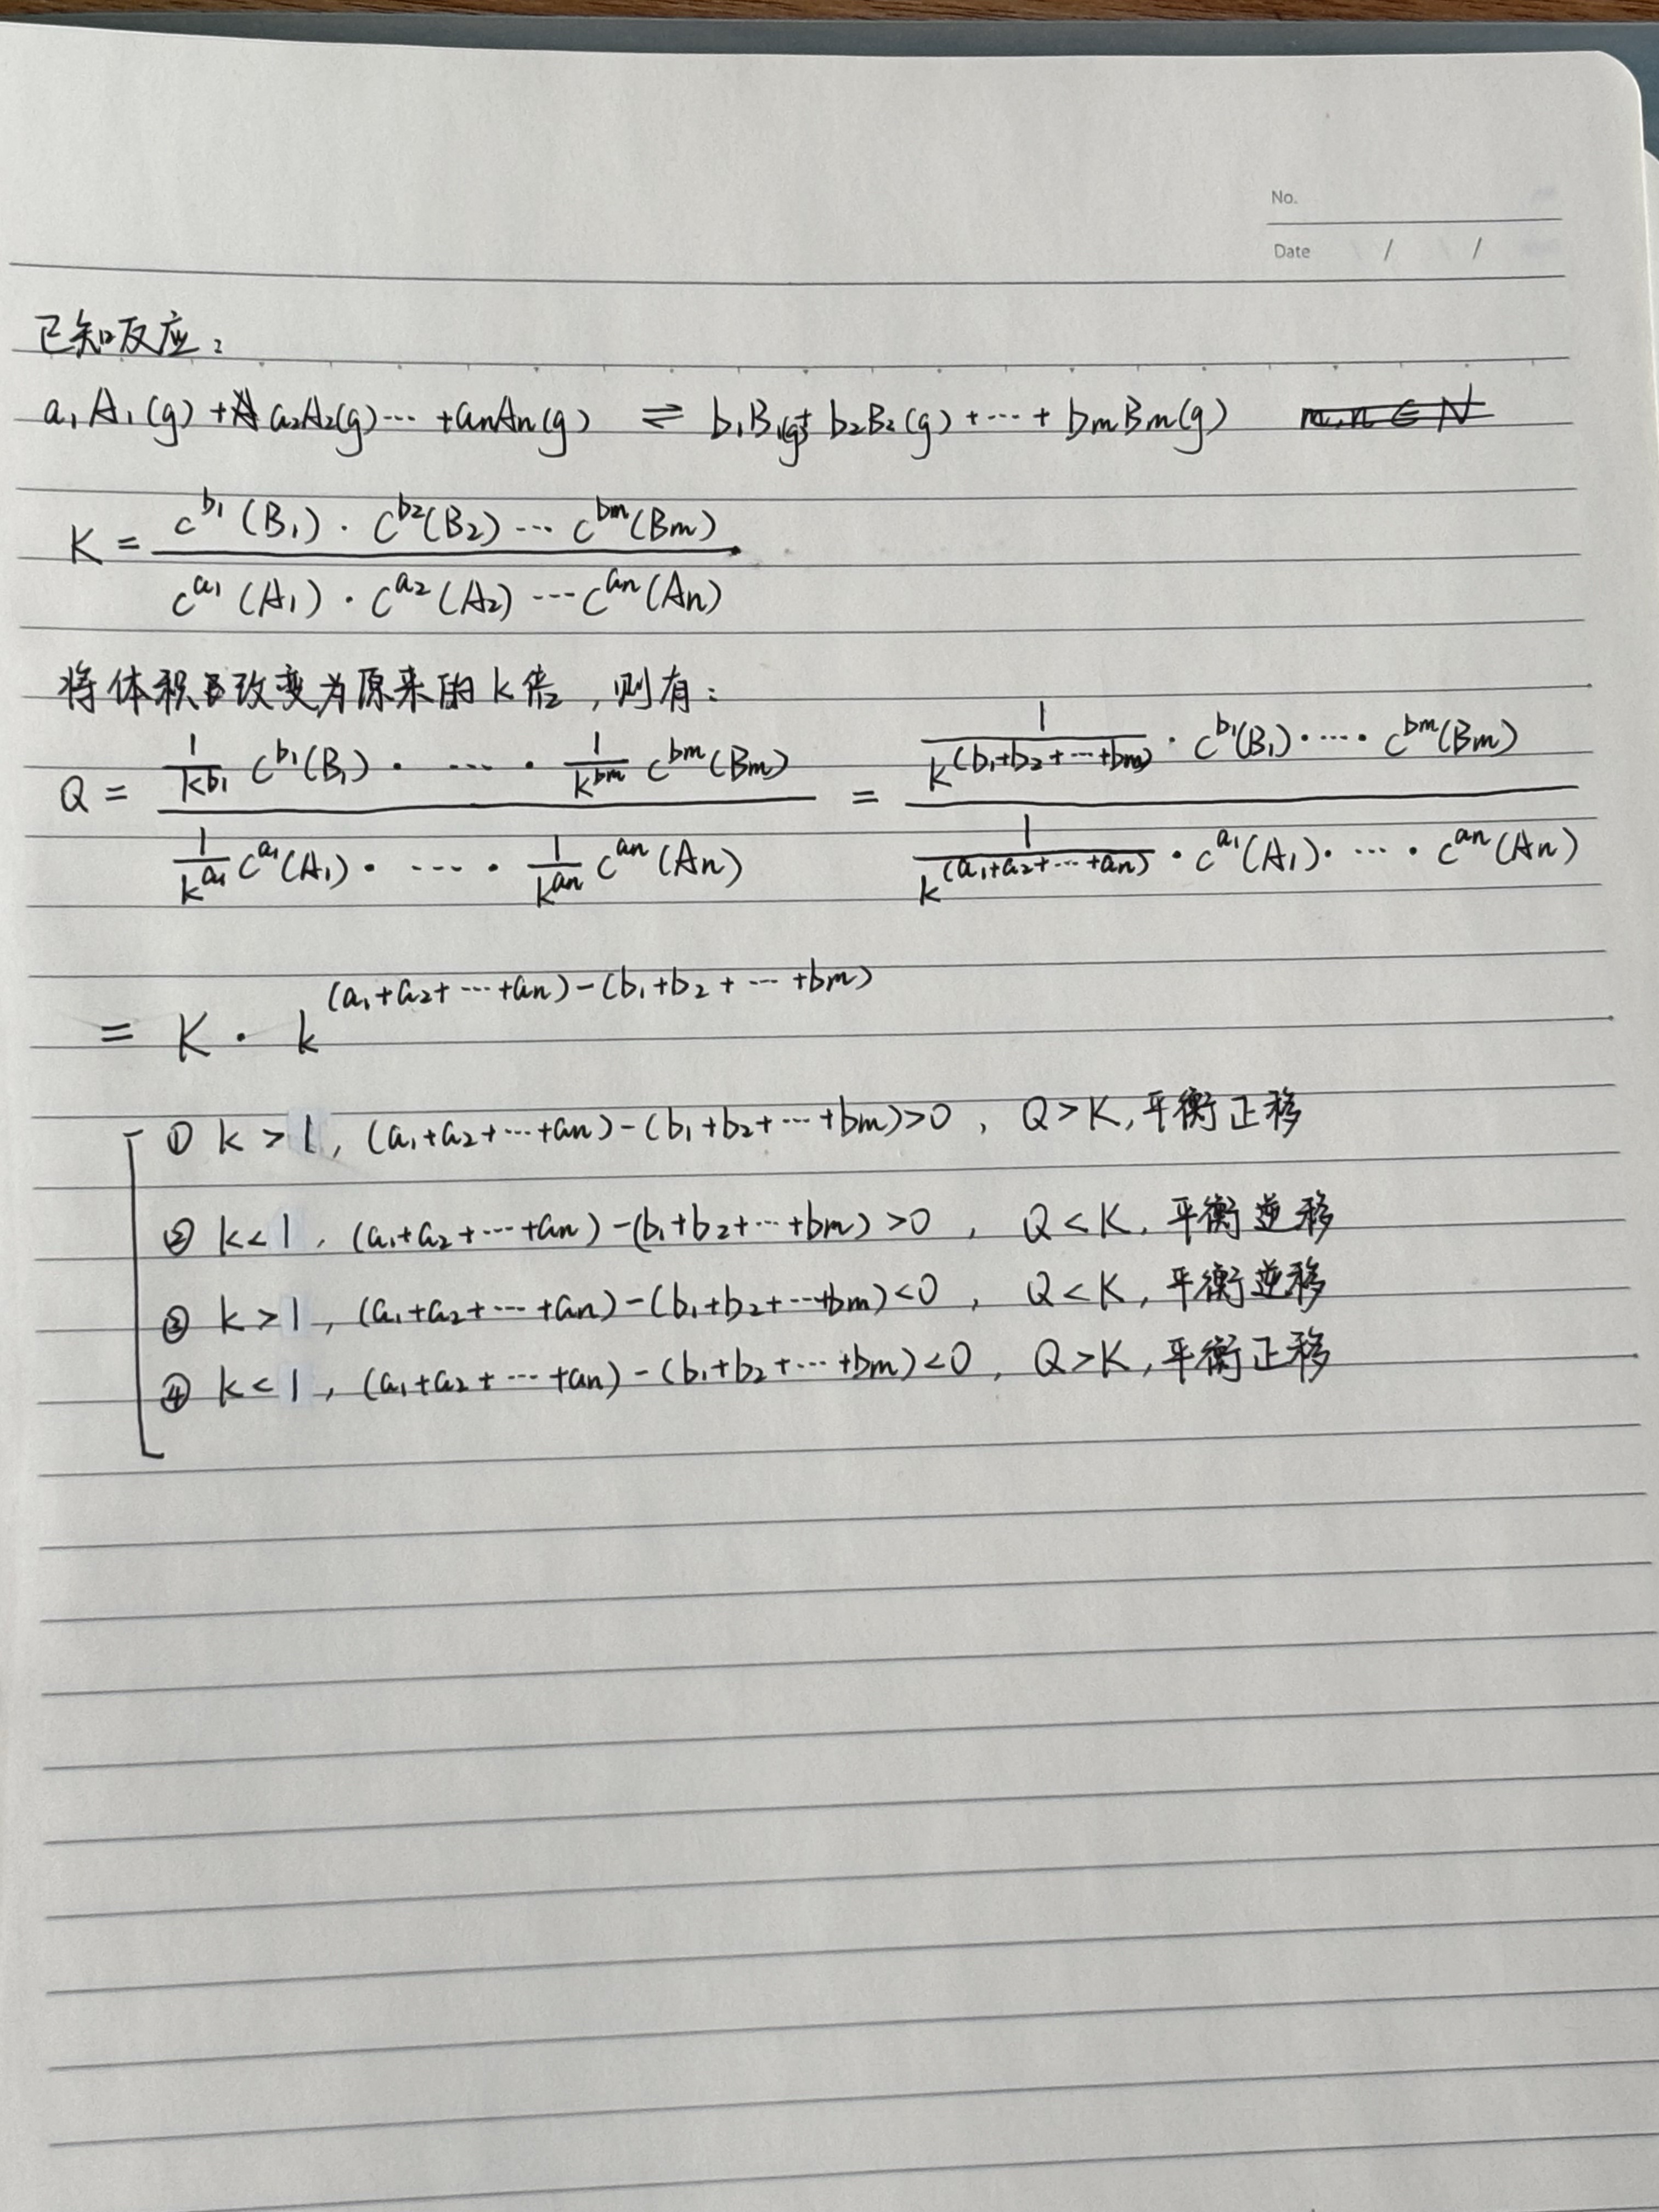 No.
Date / /
已知反应：
a₁A₁(g) + a₂A₂(g)⋯ + aₙAₙ(g) ⇌ b₁B₁(g) + b₂B₂(g) + ⋯ + bₘBₘ(g) m,n ∈ N
K = c^{b₁}(B₁) · c^{b₂}(B₂) ⋯ c^{bₘ}(Bₘ) / c^{a₁}(A₁) · c^{a₂}(A₂) ⋯ c^{aₙ}(Aₙ)
将体积改变为原来的k倍，则有：
Q = (1/k^{b₁} c^{b₁}(B₁) · ⋯ · 1/k^{bₘ} c^{bₘ}(Bₘ)) / (1/k^{a₁} c^{a₁}(A₁) · ⋯ · 1/k^{aₙ} c^{aₙ}(Aₙ)) = (1/k^{(b₁+b₂+⋯+bₘ)} · c^{b₁}(B₁) · ⋯ · c^{bₘ}(Bₘ)) / (1/k^{(a₁+a₂+⋯+aₙ)} · c^{a₁}(A₁) · ⋯ · c^{aₙ}(Aₙ))
= K · k^{(a₁+a₂+⋯+aₙ)-(b₁+b₂+⋯+bₘ)}
① k > 1, (a₁+a₂+⋯+aₙ)-(b₁+b₂+⋯+bₘ)>0, Q>K, 平衡正移
② k < 1, (a₁+a₂+⋯+aₙ)-(b₁+b₂+⋯+bₘ)>0, Q<K, 平衡逆移
③ k > 1, (a₁+a₂+⋯+aₙ)-(b₁+b₂+⋯+bₘ)<0, Q<K, 平衡逆移
④ k < 1, (a₁+a₂+⋯+aₙ)-(b₁+b₂+⋯+bₘ)<0, Q>K, 平衡正移